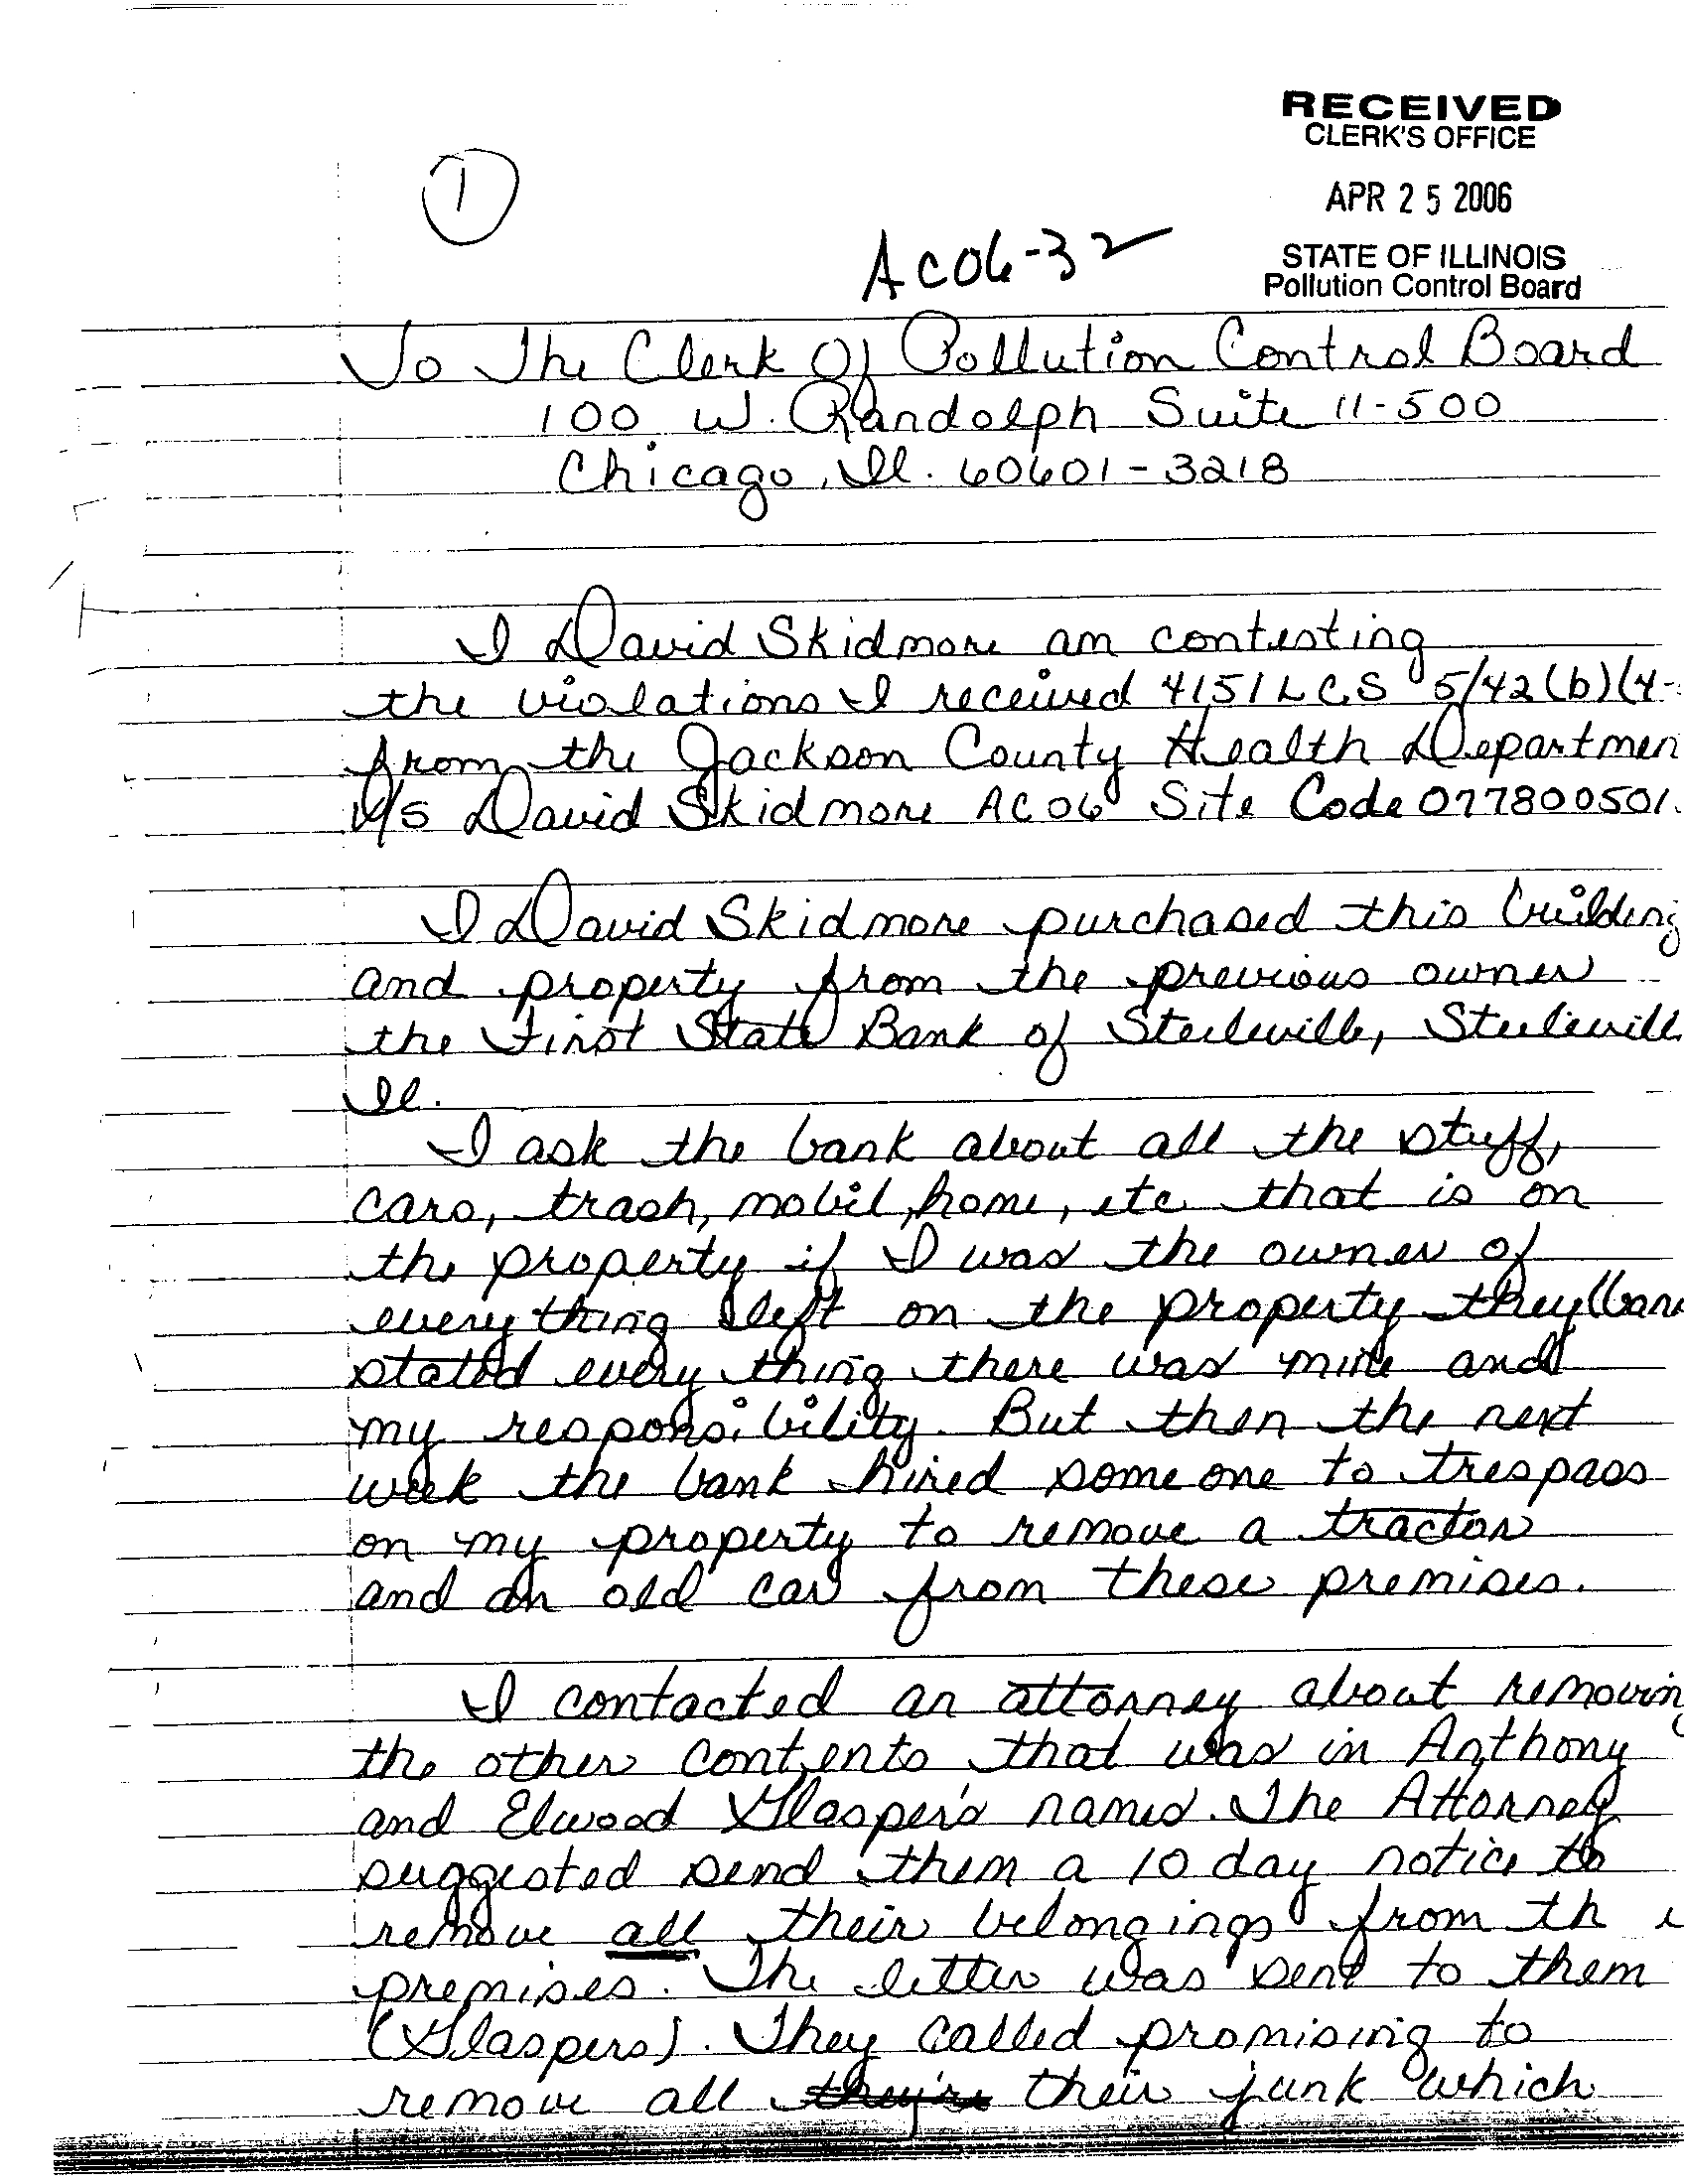 RECEIVED
CLERK'S OFFICE
APR 25 2006
STATE OF ILLINOIS
Pollution Control Board
1
AC06-32
To The Clerk Of Pollution Control Board
100 W. Randolph Suite 11-500
Chicago, Il. 60601-3218
I David Skidmore am contesting
the violations I received 415 ILCS 5/42(b)(4-
from the Jackson County Health Departmen
V/S David Skidmore AC06 Site Code 077800501
I David Skidmore purchased this building
and property from the previous owner
the First State Bank of Steeleville, Steelevill
Il.
I ask the bank about all the stuff,
cars, trash, mobil, home, etc that is on
the property if I was the owner of
everything left on the property they (ban
stated every thing there was mine and
my responsibility. But then the next
week the bank hired someone to trespass
on my property to remove a tractor
and an old car from these premises.
I contacted an attorney about removing
the other contents that was in Anthony
and Elwood Glasper's names. The Attorney
suggested send them a 10 day notice to
remove all their belongings from th e
premises. The letter was sent to them
(Glaspers). They called promising to
remove all they're their junk which